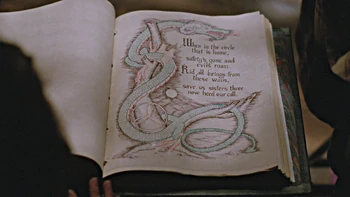 When in the circle
that is home,
safety's gone and
evils roam.
Rid all beings from
these walls,
save us sisters three
now heed our call.